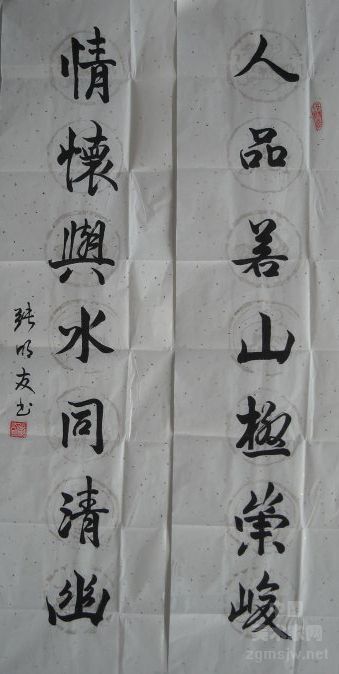 人品若山極崇峻
情懷與水同清幽
张明友书
zgmsjw.net